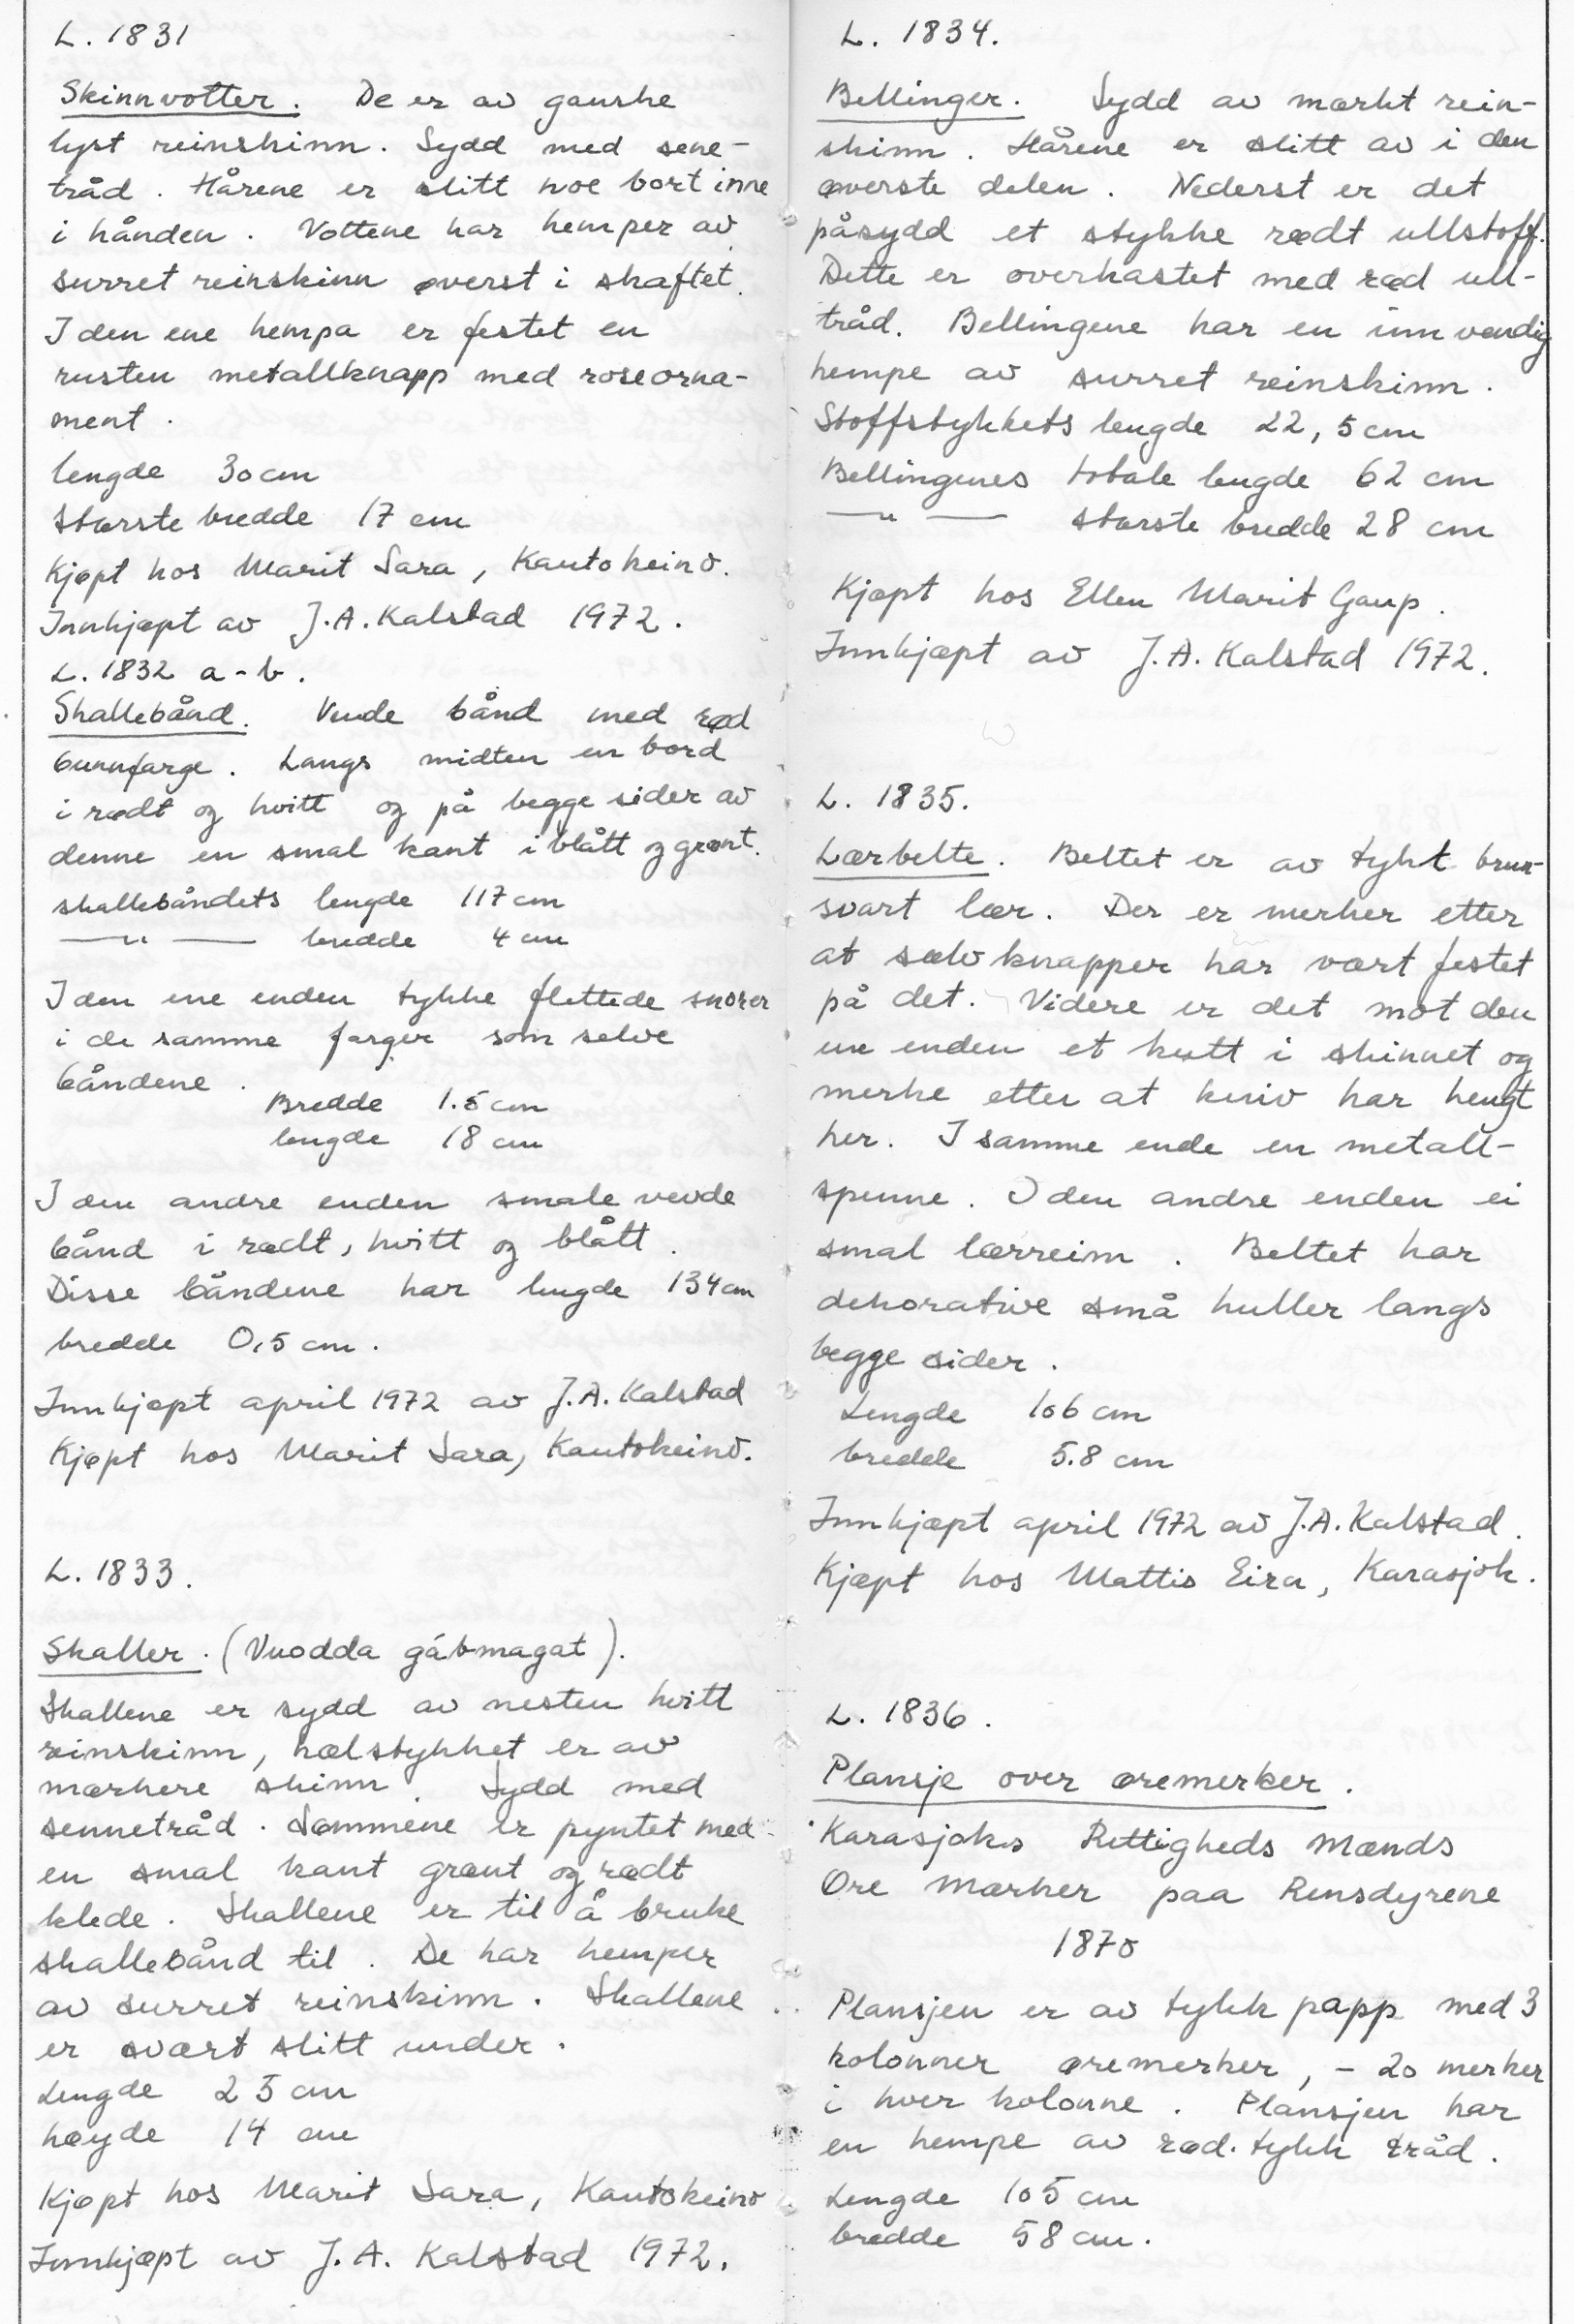 L. 1831
Skinnvotter. De er av ganske
lyst reinskinn. Sydd med sene-
tråd. Hårene er slitt noe bort inne
i hånden. Vottene har hemper av
surret reinskinn øverst i skaftet.
I den ene hempa er festet en
rusten metallknapp med roseorna-
ment.
lengde 30 cm
største bredde 17 cm
Kjøpt hos Marit Sara, Kautokeino.
Innkjøpt av J.A. Kalstad 1972.
L. 1832 a-b.
Skallebånd. Vevde bånd med rød
bunnfarge. Langs midten en bord
i rødt og hvitt og på begge sider av
denne en smal kant i blått og grønt.
skallebåndets lengde 117 cm
—"— bredde 4 cm
I den ene enden tykke flettede snorer
i de samme farger som selve
båndene.
Bredde 1.5 cm
lengde 18 cm
I den andre enden smale vevde
bånd i rødt, hvitt og blått.
Disse båndene har lengde 134 cm
bredde 0,5 cm.
Innkjøpt april 1972 av J.A. Kalstad
Kjøpt hos Marit Sara, Kautokeino.
L. 1833.
Skaller. (Vuodda gábmagat).
Skallene er sydd av nesten hvitt
reinskinn, hælstykket er av
mørkere skinn. Sydd med
sennetråd. Sømmene er pyntet med
en smal kant grønt og rødt
klede. Skallene er til å bruke
skallebånd til. De har hemper
av surret reinskinn. Skallene
er svært slitt under.
Lengde 25 cm
høyde 14 cm
Kjøpt hos Marit Sara, Kautokeino
Innkjøpt av J.A. Kalstad 1972.
L. 1834.
Bellinger. Sydd av mørkt rein-
skinn. Hårene er slitt av i den
øverste delen. Nederst er det
påsydd et stykke rødt ullstoff.
Dette er overkastet med rød ull-
tråd. Bellingene har en innvendig
hempe av surret reinskinn.
Stoffstykkets lengde 22,5 cm
Bellingenes totale lengde 62 cm
—"— største bredde 28 cm
Kjøpt hos Ellen Marit Gaup.
Innkjøpt av J.A. Kalstad 1972.
L. 1835.
Lærbelte. Beltet er av tykt brun-
svart lær. Der er merker etter
at sølvknapper har vært festet
på det. Videre er det mot den
ene enden et kutt i skinnet og
merke etter at kniv har hengt
her. I samme ende en metall-
spenne. I den andre enden ei
smal lærreim. Beltet har
dekorative små huller langs
begge sider.
Lengde 106 cm
bredde 5.8 cm
Innkjøpt april 1972 av J.A. Kalstad.
Kjøpt hos Mattis Eira, Karasjok.
L. 1836.
Plansje over øremerker.
Karasjoks Rettigheds Mænds
Øre Mærker paa Rensdyrene
1870
Plansjen er av tykk papp med 3
kolonner øremerker, - 20 merker
i hver kolonne. Plansjen har
en hempe av rød tykk tråd.
Lengde 105 cm
bredde 58 cm.